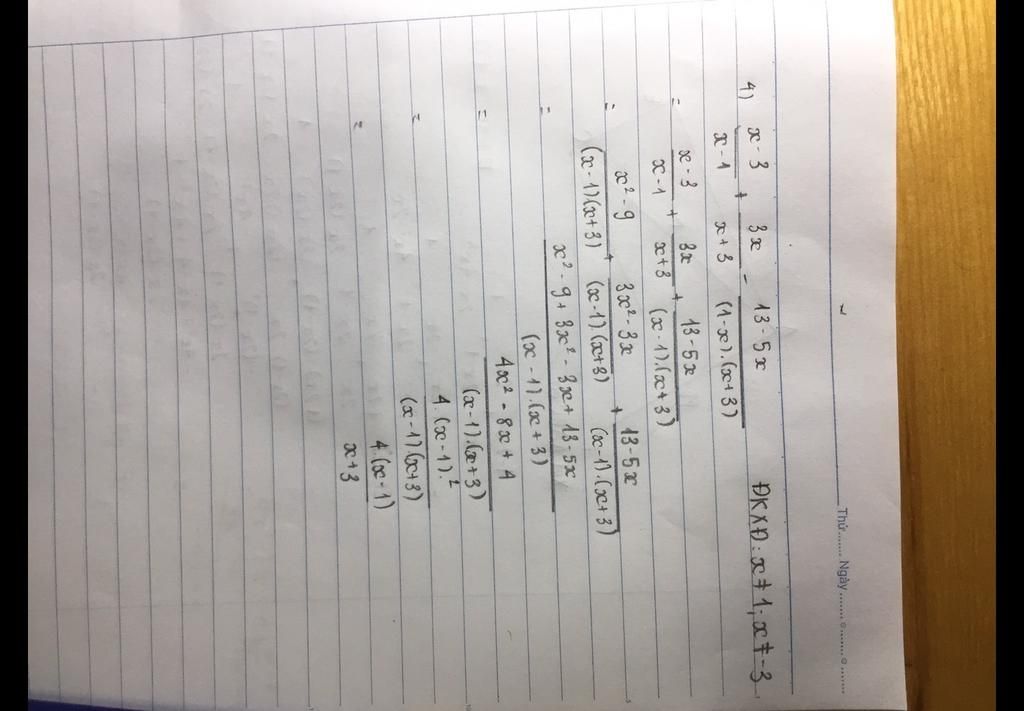 Thứ ........ Ngày ........
4) x - 3 / x - 1 + 3x / x + 3 - 13 - 5x / (1 - x).(x + 3) ĐKXĐ: x ≠ 1; x ≠ -3
= x - 3 / x - 1 + 3x / x + 3 + 13 - 5x / (x - 1).(x + 3)
= x² - 9 / (x - 1)(x + 3) + 3x² - 3x / (x - 1).(x + 3) + 13 - 5x / (x - 1).(x + 3)
= x² - 9 + 3x² - 3x + 13 - 5x / (x - 1).(x + 3)
= 4x² - 8x + 4 / (x - 1).(x + 3)
= 4.(x - 1)² / (x - 1)(x + 3)
= 4.(x - 1) / x + 3